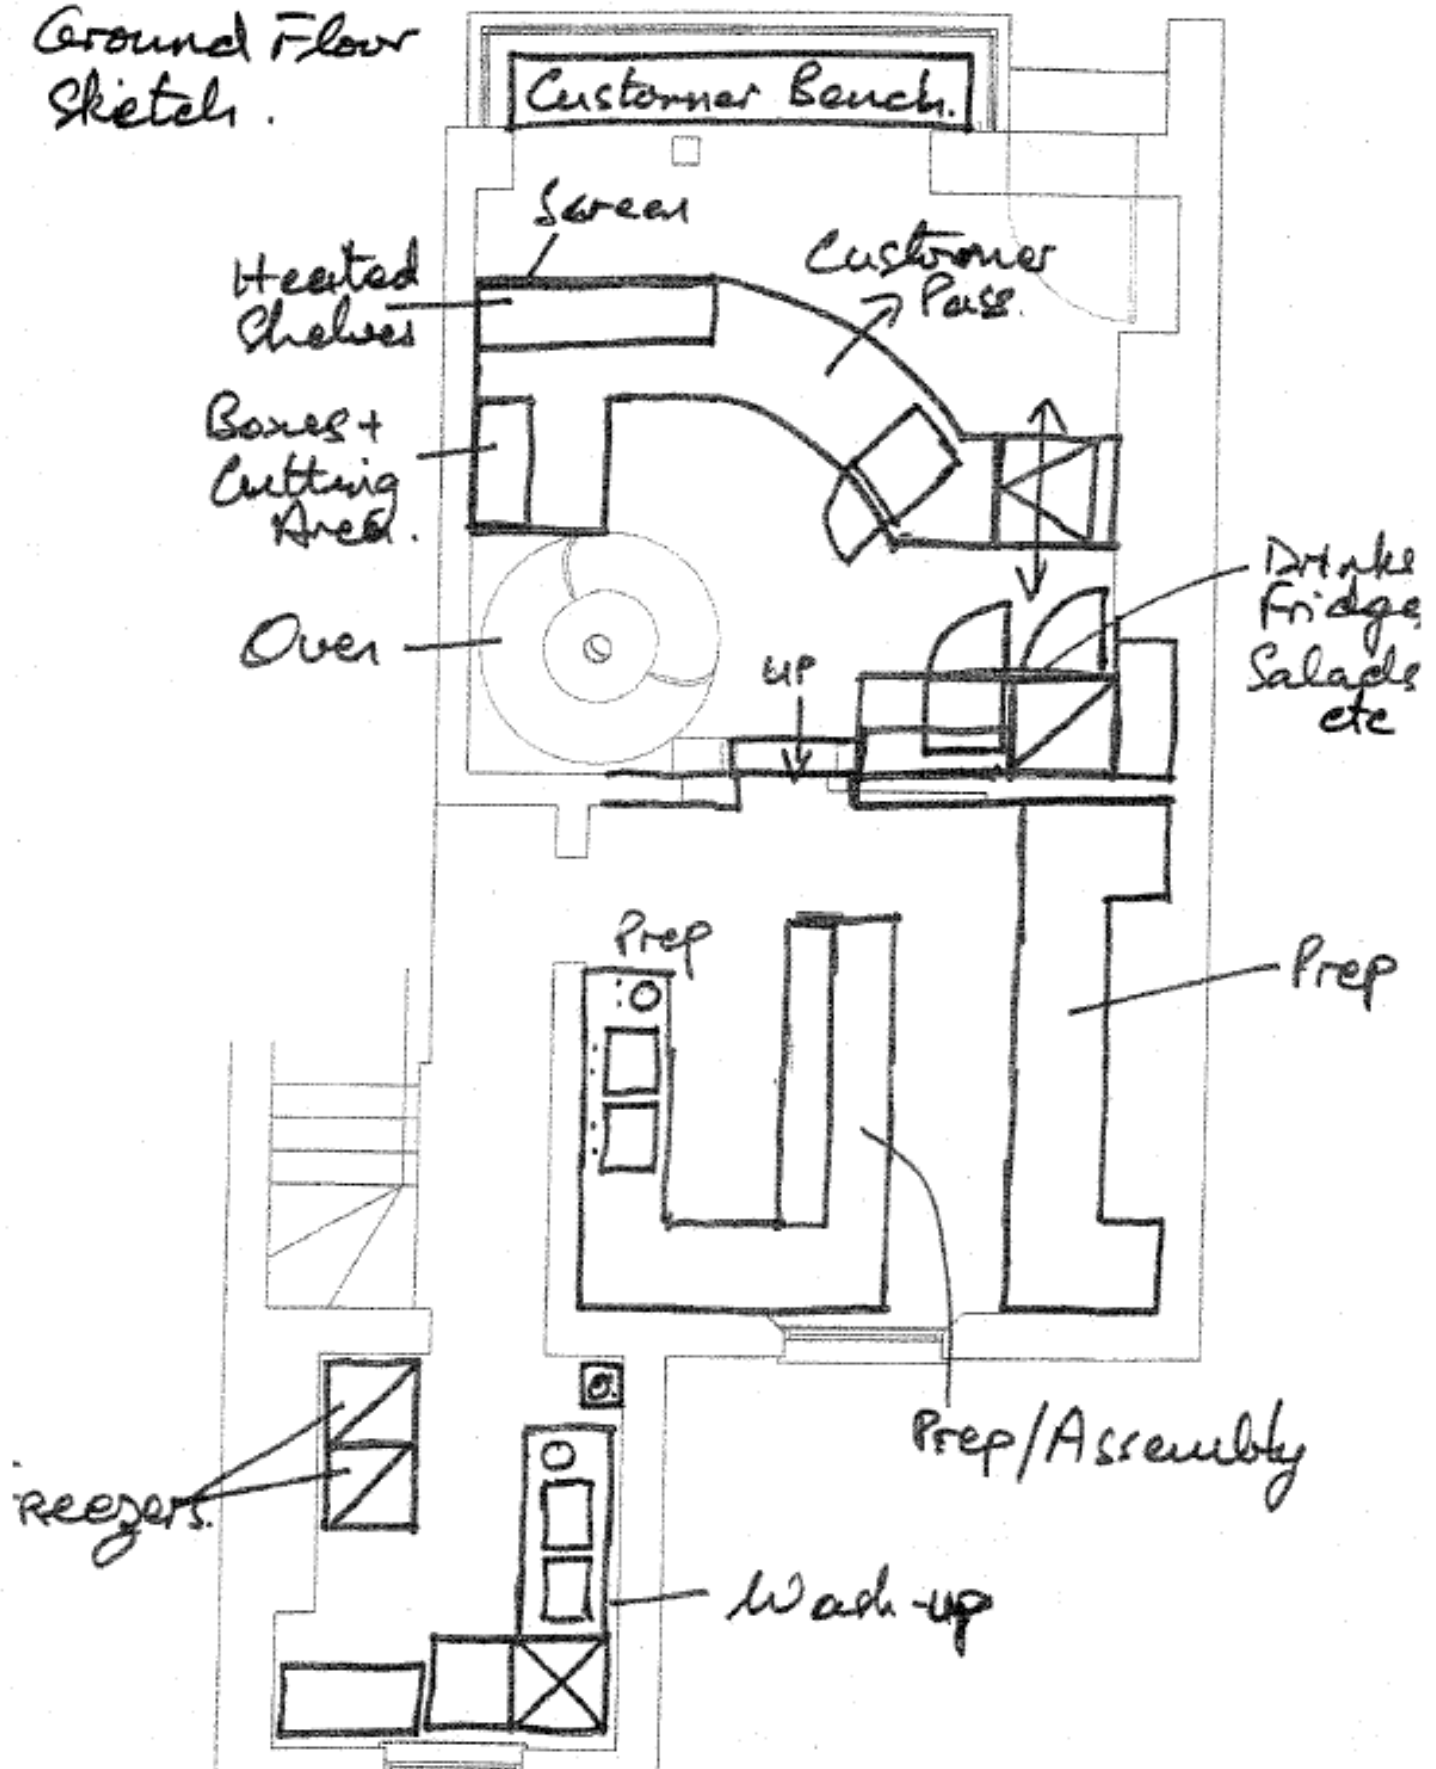 Ground Floor
Sketch.
Customer Bench.
Screen
Heated
Shelves
Customer
Pass.
Boxes +
Cutting
Area.
Oven
UP
Drinks
Fridge,
Salads
etc
Prep
Prep
Prep/Assembly
reezers.
Wash-up